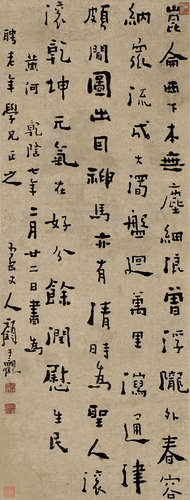 崑崙西下本無塵細浪曾浮隴外春容
納衆流成大濁盤迴萬里瀉通津
頗聞圖出自神馬亦有清時為聖人滾
滾乾坤元氣在好分餘潤慰生民
黃河 乾隆七年二月廿二日書為
聘老年學兄正之
丈人顧于觀